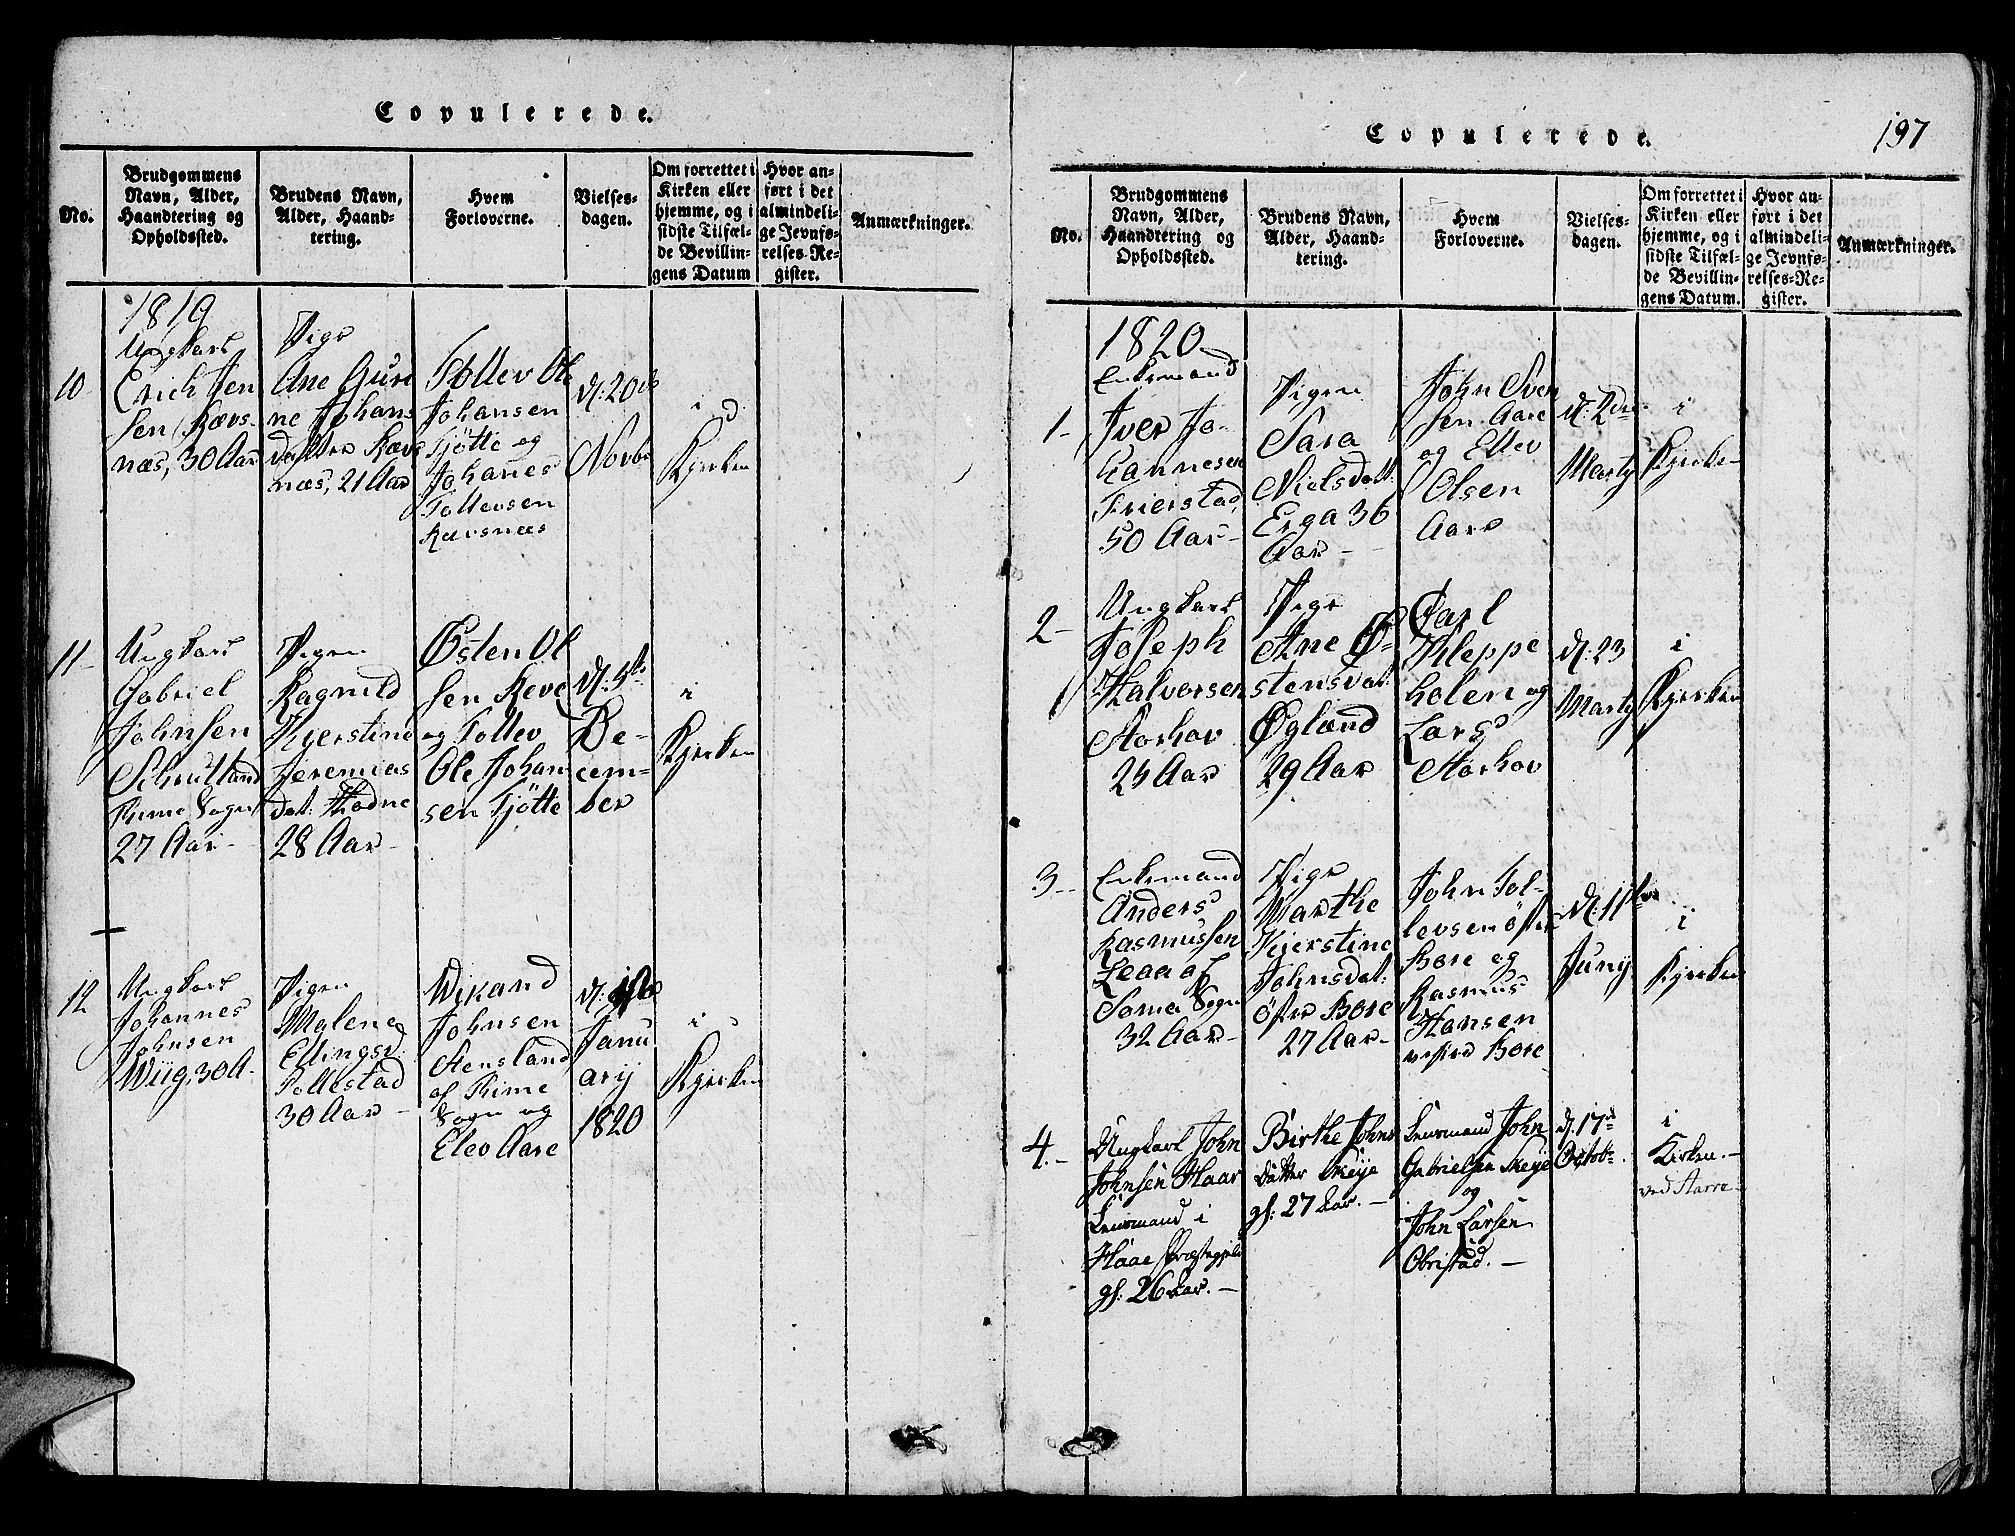 Copulerede.
No.
Brudgommens
Navn, Alder,
Haandtering og
Opholdssted.
Brudens Navn,
Alder, Haand-
tering.
Hvem
Forloverne.
Vielses-
dagen.
Om forrettet i
Kirken eller
hjemme, og i
sidste Tilfæl-
de Bevillin-
gens Datum
Hvor an-
ført i det
almindeli-
ge Jevnfø-
relses-Re-
gister.
Anmærkninger.
1819
10
Ungkarl
Erich Jen
sen Rævs-
næs, 30 Aar
Pige
Ane Guri
ne Johans
datter Rævs
næs, 21 Aar
Tollev Ole
Johansen
Tjøtte og
Johanes
Tollevsen
Rævsnæs
d: 20de
Novbr
i
Kjerken
11-
Ungkarl
Gabriel
Johnsen
Schutland
Time Sogn
27 Aar-
Pigen
Ragnild
Kjerstine
Jeremias
dat: Hodne
28 Aar-
Østen Ol
sen Reve
og Tollev
Ole Johan
sen Tjøtte
d:
De-
cem-
ber
i
Kjerken
12
Ungkarl
Johannes
Johnsen
Wiig, 30 A-
Pigen
Malene
Ellingsd
Tollestad
30 Aar-
Wikand
Johnsen
Stensland
af Time
Sogn og
Elev Aare
d:
Janu
arij
1820
i
Kjerken
Copulerede.
197
No.
Brudgommens
Navn, Alder,
Haandtering og
Opholdssted.
Brudens Navn,
Alder, Haand-
tering.
Hvem
Forloverne.
Vielses-
dagen.
Om forrettet i
Kirken eller
hjemme, og i
sidste Tilfæl-
de Bevillin-
gens Datum.
Hvor an-
ført i det
almindeli-
ge Jevnfø-
relses-Re-
gister.
Anmærkninger.
1820
1-
Enkemand
Iver Jo-
hannesen
Frierstad
50 Aar-
Pigen
Sara
Nielsdatt:
Erga 36
Aar-
John Sven
sen Aare
og Ellev
Olsen
Aare
d: 2den
Marty
i
Kjerken
2-
Ungkarl
Joseph
Halvorsen
Storhov
24 Aar
Pige
Ane Ø-
stensdat:
Øgland
29 Aar
Carl
Kleppe
holen og
Lars
Storhov
d: 23
Marty
i
Kjerken
3-
Enkemand
Anders
Rasmussen
Leaa af
Soma Sogn
32 Aar-
Pige
Marthe
Kjerstine
Johnsdat:
Østre Bore
27 Aar-
John Tol-
levsen Østre
Bore og
Rasmus
Hansen
vestre Bore
d: 11te
Junij
i
Kjerken
4.-
Ungkarl John
Johnsen Haar
Lensmand i
Haae Præstegjeld
gl: 26 Aar.-
Birthe Johns
datter Skeije
gl: 27 Aar.-
Lensmand John
Gabrielsen Skeije
og
John Larsen
Obrestad.-
d: 17de
Octobr.
i
Kirken.-
ved Starre